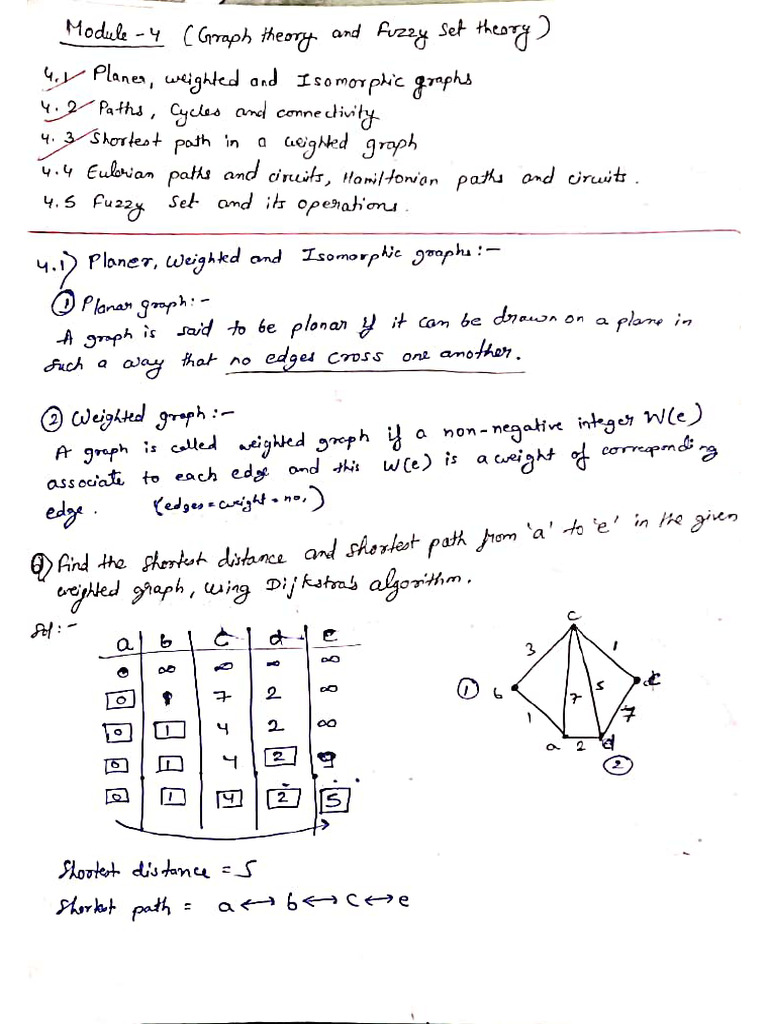 Module-4 (Graph theory and Fuzzy Set theory)
4.1 Planer, weighted and Isomorphic graphs
4.2 Paths, Cycles and connectivity
4.3 Shortest path in a weighted graph
4.4 Eulerian paths and circuits, Hamiltonian paths and circuits.
4.5 Fuzzy Set and its operations.
4.1) Planer, Weighted and Isomorphic graphs:-
① Planar graph:-
A graph is said to be planar if it can be drawn on a plane in
such a way that no edges cross one another.
② Weighted graph:-
A graph is called weighted graph if a non-negative integer W(e)
associate to each edge and this W(e) is a weight of corresponding
edge. (edges = weight = no.)
Q) find the shortest distance and shortest path from 'a' to 'e' in the given
weighted graph, using Dijkstra's algorithm.
Sol:-
a b c d e
0 ∞ ∞ ∞ ∞
0 1 7 2 ∞
0 1 4 2 ∞
0 1 4 2 9
0 1 4 2 5
c
3 1
① b 7 5 e
1 7
a 2 d
②
Shortest distance = 5
Shortest path = a ↔ b ↔ c ↔ e